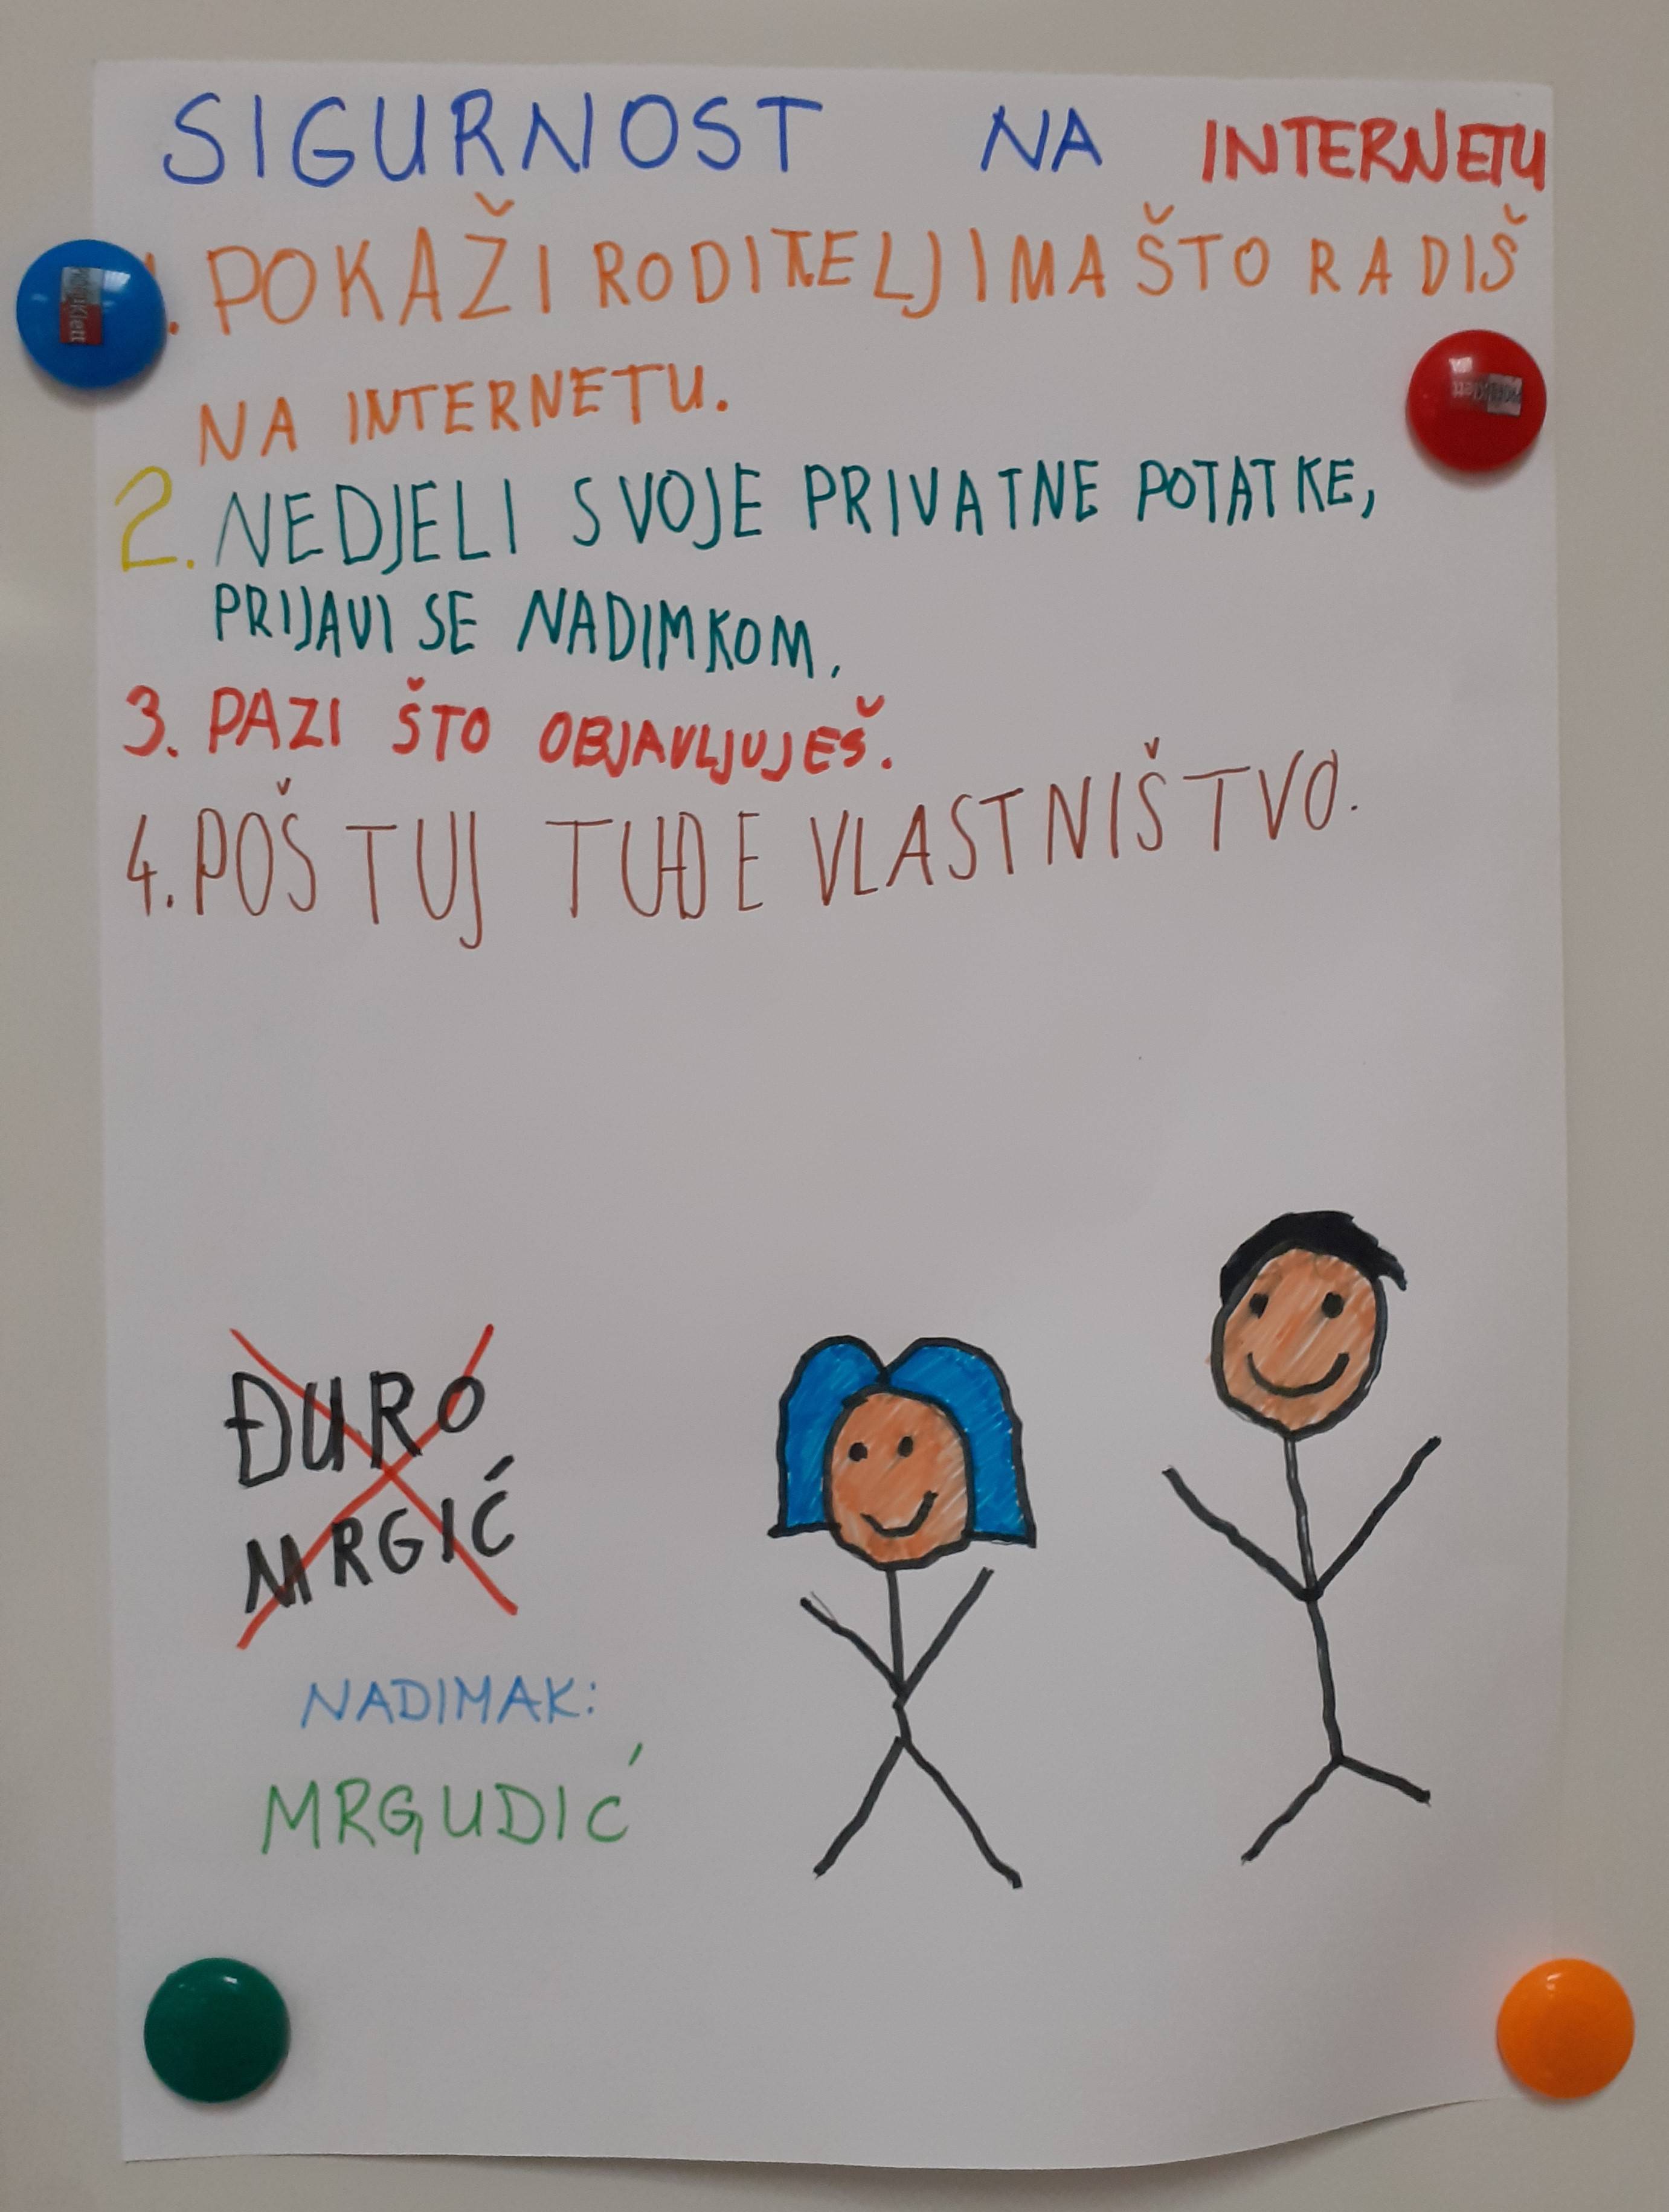 SIGURNOST NA INTERNETU
1. POKAŽI RODITELJIMA ŠTO RADIŠ
NA INTERNETU.
2. NEDJELI SVOJE PRIVATNE POTATKE,
PRIJAVI SE NADIMKOM.
3. PAZI ŠTO OBJAVLJUJEŠ.
4. POŠTUJ TUĐE VLASTNIŠTVO.
ĐURO
MRGIĆ
NADIMAK:
MRGUDIĆ